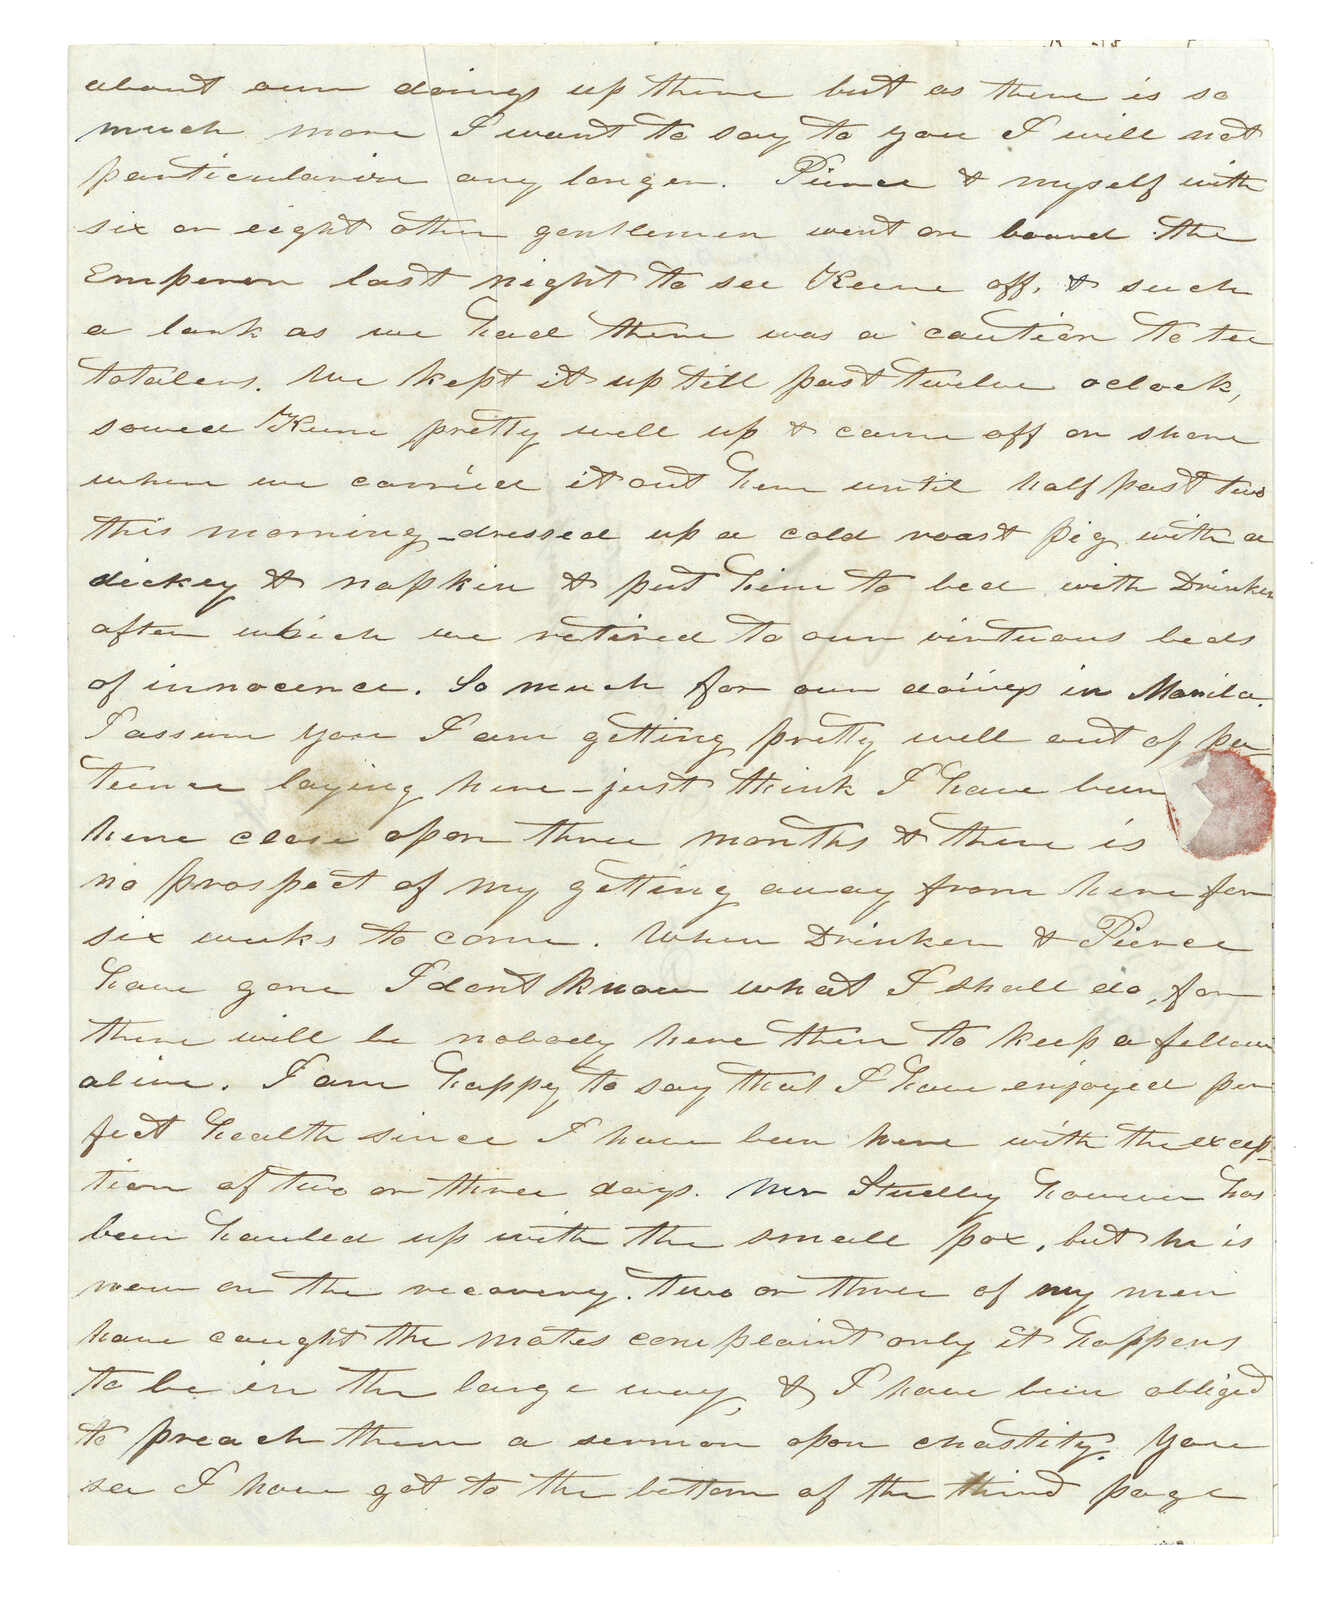 about our doings up there but as there is so
much more I want to say to you I will not
particularize any longer. Pierce & myself with
six or eight other gentlemen went on board the
Emperor last night to see Keene off, & such
a lark as we had there was a caution to tee
totalers. We kept it up till past twelve oclock,
sewed Keene pretty well up & came off on shore
when we carried it out here until half past two
this morning - dressed up a cold roast pig with a
dickey & napkin & put him to bed with Drinker
after which we retired to our virtuous beds
of innocence. So much for our doings in Manila.
I assure you I am getting pretty well out of pa
tience laying here - just think I have been
here close upon three months & there is
no prospect of my getting away from here for
six weeks to come. When Drinker & Pierce
have gone I dont know what I shall do, for
there will be nobody here then to keep a fellow
alive. I am happy to say that I have enjoyed per
fect health since I have been here with the excep-
tion of two or three days. Mr Studley however has
been hauled up with the small pox, but he is
now on the recovery. two or three of my men
have caught the mates complaint only it happens
to be in the large way, & I have been obliged
to preach them a sermon upon chastity. You
see I have got to the bottom of the third page